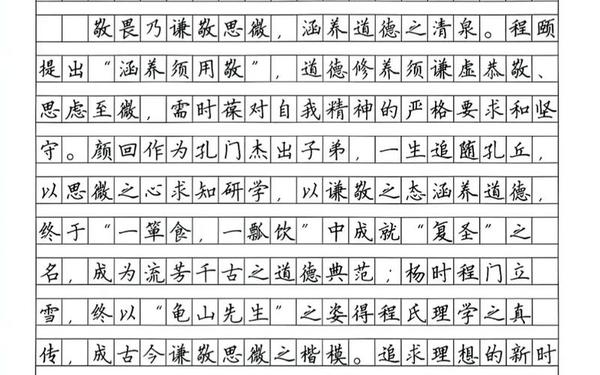 敬畏乃谦敬思微，涵养道德之清泉。程颐
提出“涵养须用敬”，道德修养须谦虚恭敬、
思虑至微，需时葆对自我精神的严格要求和坚
守。颜回作为孔门杰出子弟，一生追随孔丘，
以思微之心求知研学，以谦敬之态涵养道德，
终于“一箪食，一瓢饮”中成就“复圣”之
名，成为流芳千古之道德典范；杨时程门立
雪，终以“龟山先生”之姿得程氏理学之真
传，成古今谦敬思微之楷模。追求理想的新时